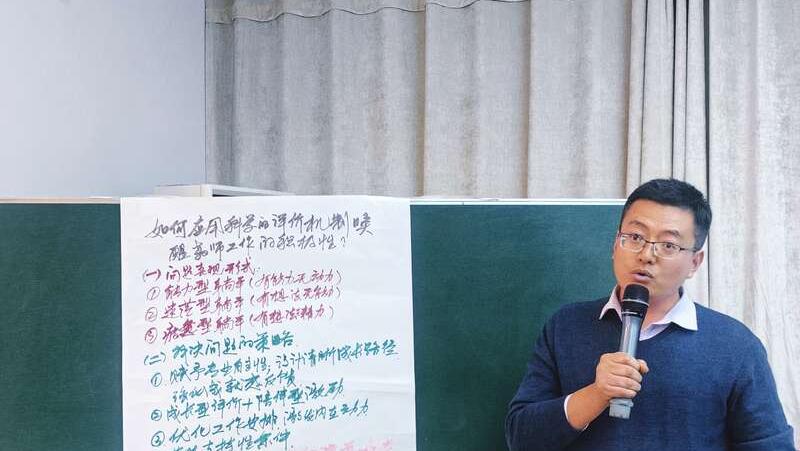 如何应用科学的评价机制唤
醒教师工作的积极性？
(一) 问题表现形式:
① 能力型躺平(有能力无动力)
② 迷茫型躺平(有想法无能力)
③ 疲惫型躺平(有想法无精力)
(二) 解决问题的策略
① 赋予专业自主性,设计清晰成长路径
强化成就感反馈
② 成长型评价+陪伴型激励
③ 优化工作安排,激发内在动力
支持性条件